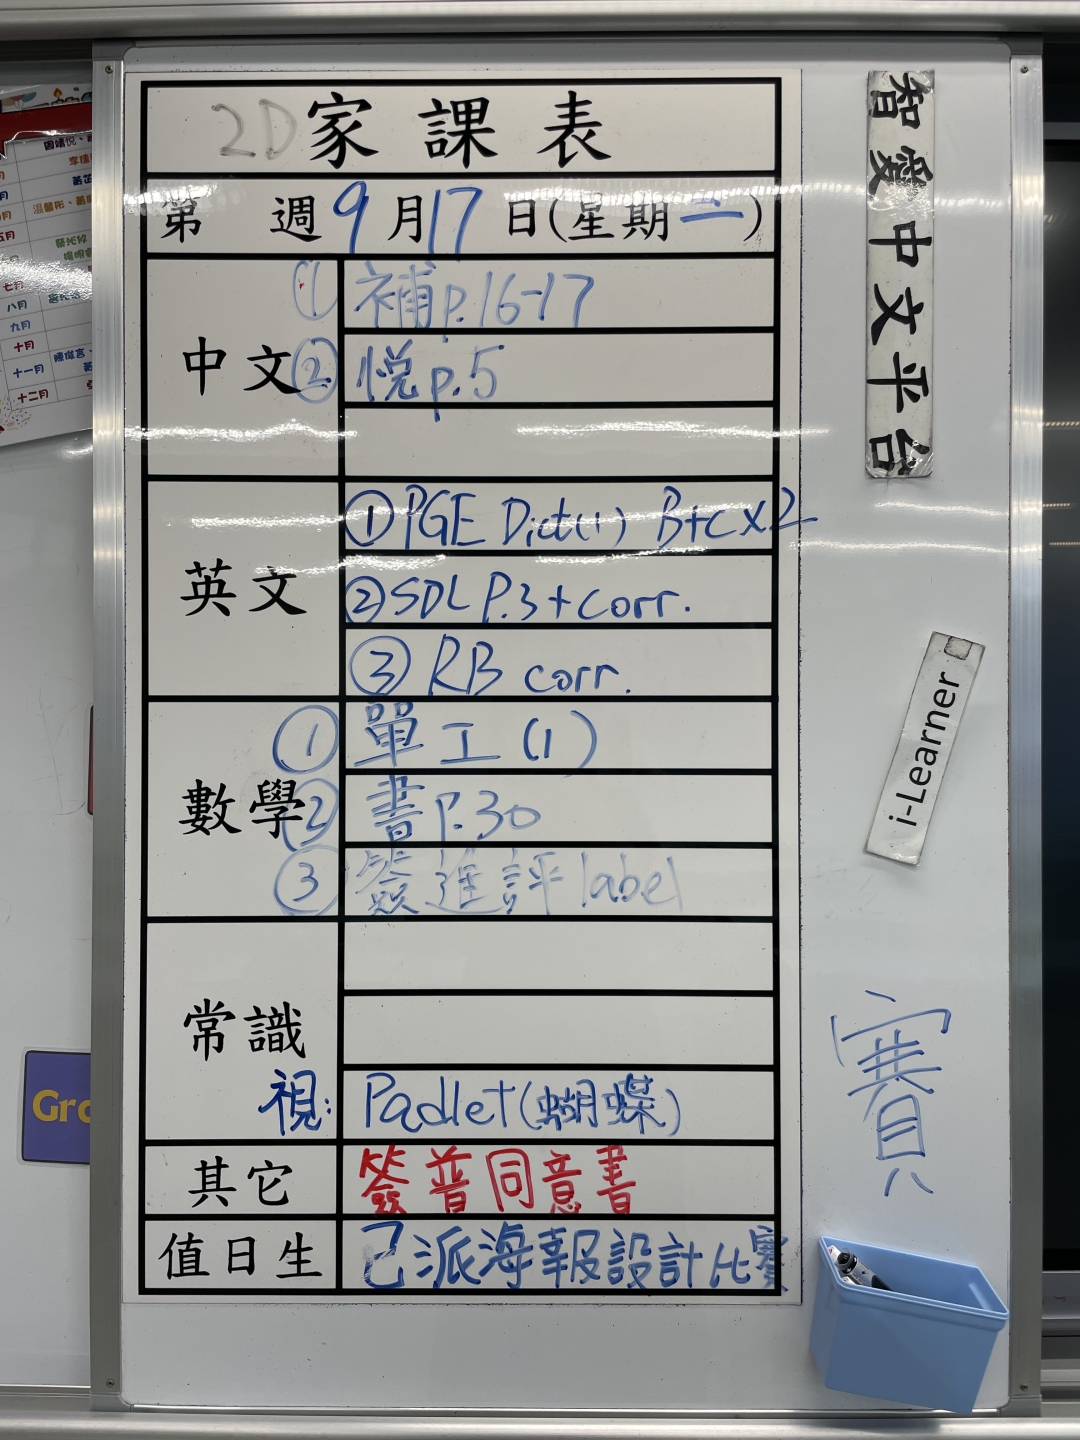 2D家課表
第 週9月17日(星期二)
中文
① 補p.16-17
② 悦p.5
英文
① PGE Dict(1) B+C x2
② SDL P.3 + corr.
③ RB corr.
數學
① 單工(1)
② 書P.30
③ 簽進評label
常識
視: Padlet(蝴蝶)
其它
簽普同意書
值日生
已派海報設計比賽
智愛中文平台
i-Learner
賽
七月
八月
九月
十月
十一月
十二月
Gr